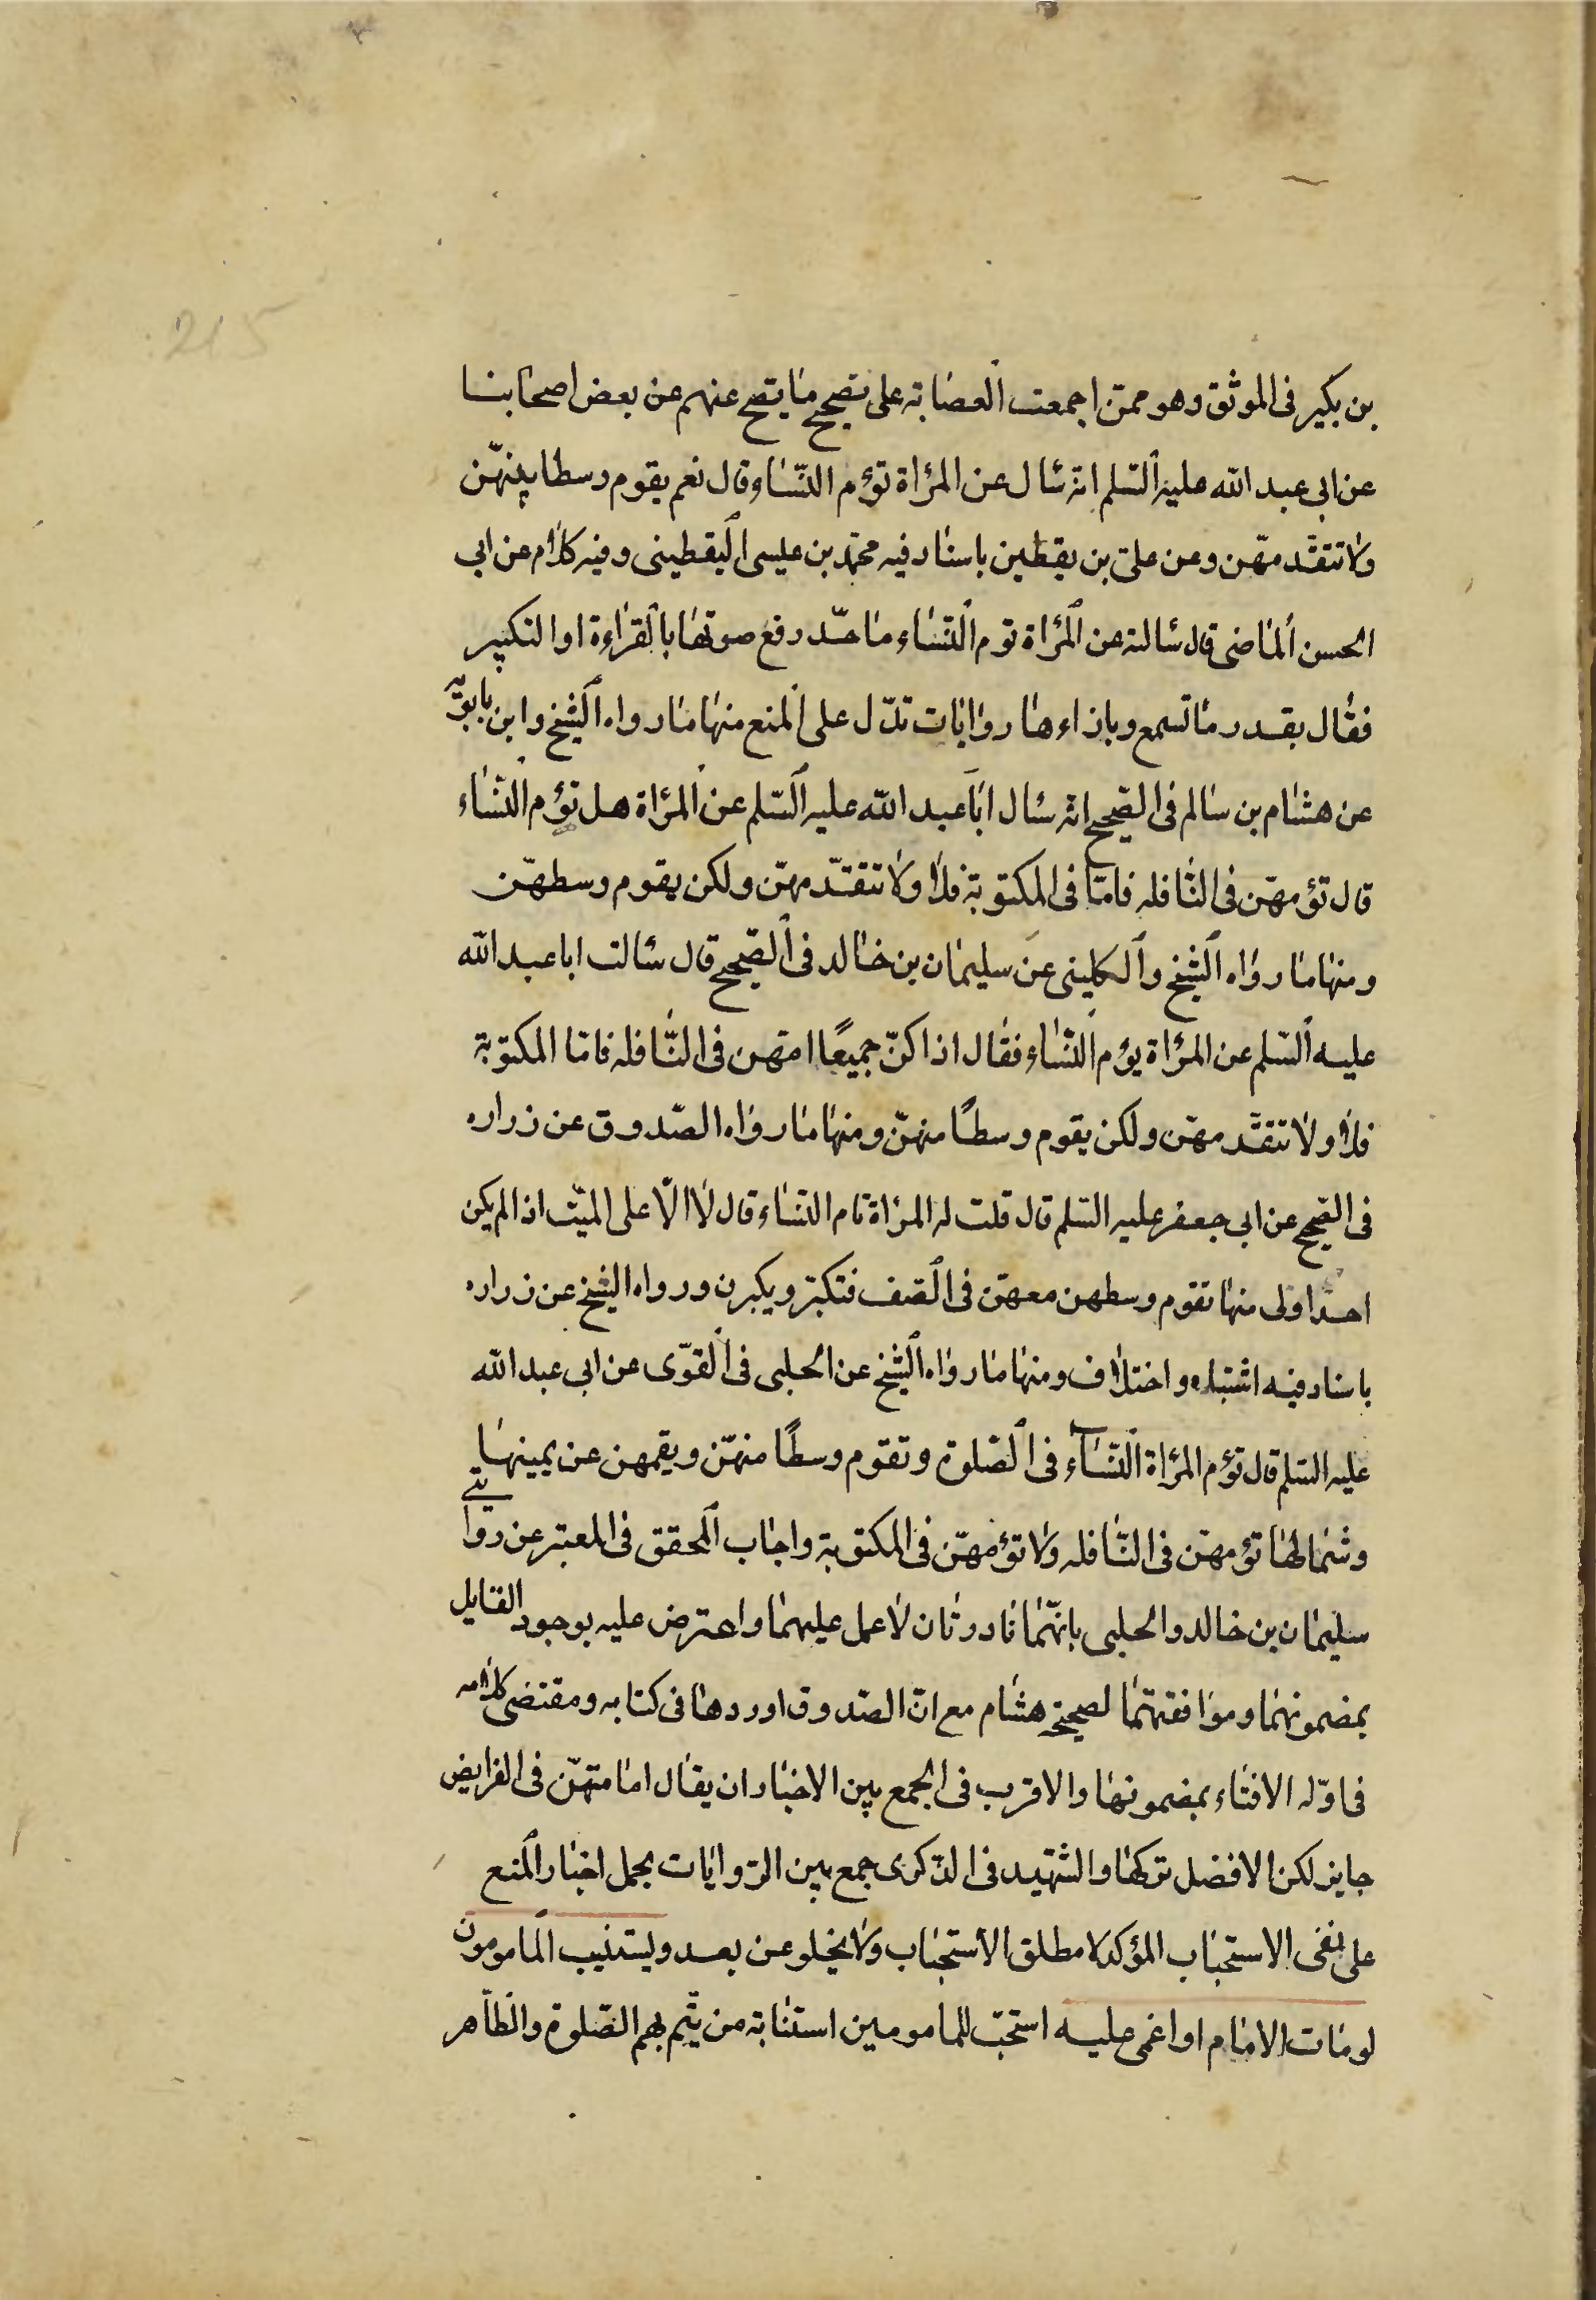 215
بن بكير فى الموثق وهو ممّن اجمعت العصابة على تصحيح ما يصحّ عنهم عن بعض اصحابنا
عن ابى عبد الله عليه السّلم انّه سٔال عن المرٔاة تؤم النّسٰاء قال نعم يقوم وسطا بينهنّ
ولا تتقدّمهّن وعن علىّ بن يقطين باسناد فيه محمّد بن عليسى اليقطينى وفيه كلام عن ابى
الحسن الماضى قال سٔالته عن المرٔاة توم النّسٰاء ما حدّ رفع صوتها بالقراءة او التكبير
فقال بقدر ما تسمع وبازاءها روايات تدّل على المنع منها ما رواه الشّيخ وابن بابويه
عن هشام بن سالم فى الصّحيح انّه سٔال ابا عبد الله عليه السّلم عن المرٔاة هل تؤم النّسٰاء
قال تؤمهّن فى النّافله فامّا فى المكتوبة فلا ولا تتقدّمهنّ ولكن يقوم وسطهّن
ومنها ما رواه الشّيخ والكلينى عن سليمان بن خالد فى الصّحيح قال سٔالت ابا عبد الله
عليه السّلم عن المرٔاة يؤم النّسٰاء فقال اذا كنّ جميعًا امّتهن فى النّافله فامّا المكتوبة
فلا ولا تتقدّمهّن ولكن يقوم وسطًا منهنّ ومنها ما رواه الصّدوق عن زراره
فى الصّحيح عن ابى جعفر عليه السّلم قال قلت له المرٔاة تام النّسٰاء قال لا الّا على الميّت اذا لم يكن
احدًا اولى منها تقوم وسطهن معهّن فى الصّف فتكبّر ويكبرن ورواه الشيخ عن زراره
باسناد فيه اشتباه واختلاف ومنها ما رواه الشّيخ عن الحلبى فى القوّى عن ابى عبد الله
عليه السّلم قال تؤم المرٔاة النّسٰآء فى الصّلوة وتقوم وسطًا منهّن ويقمهن عن يمينها
وشمالها تؤمهّن فى النّافله ولا تؤمهّن فى المكتوبة واجاب المحقق فى المعتبر عن روايتى
سليمان بن خالد والحلبى بانّهما نادرتان لا عمل عليهما واعترض عليه بوجود القايل
بمضمونهما وموافقتهما لصحيحة هشام مع انّ الصّدوق اوردها فى كتابه ومقتضى كلامه
فى اوّله الافتاء بمضمونها والاقرب فى الجمع بين الاخبار ان يقال امامتهّن فى الفرايض
جايز لكن الافضل تركها والشّهيد فى الذّكرى جمع بين الرّوايات بحمل اخبار المنع
على نفى الاستحباب المؤكد لا مطلق الاستحباب ولا يخلو عن بعد ويستنيب المامومون
لو مات الامام او اغمى عليه استحّب للمامومين استنابة من يتّم بهم الصّلوة والظّاهر